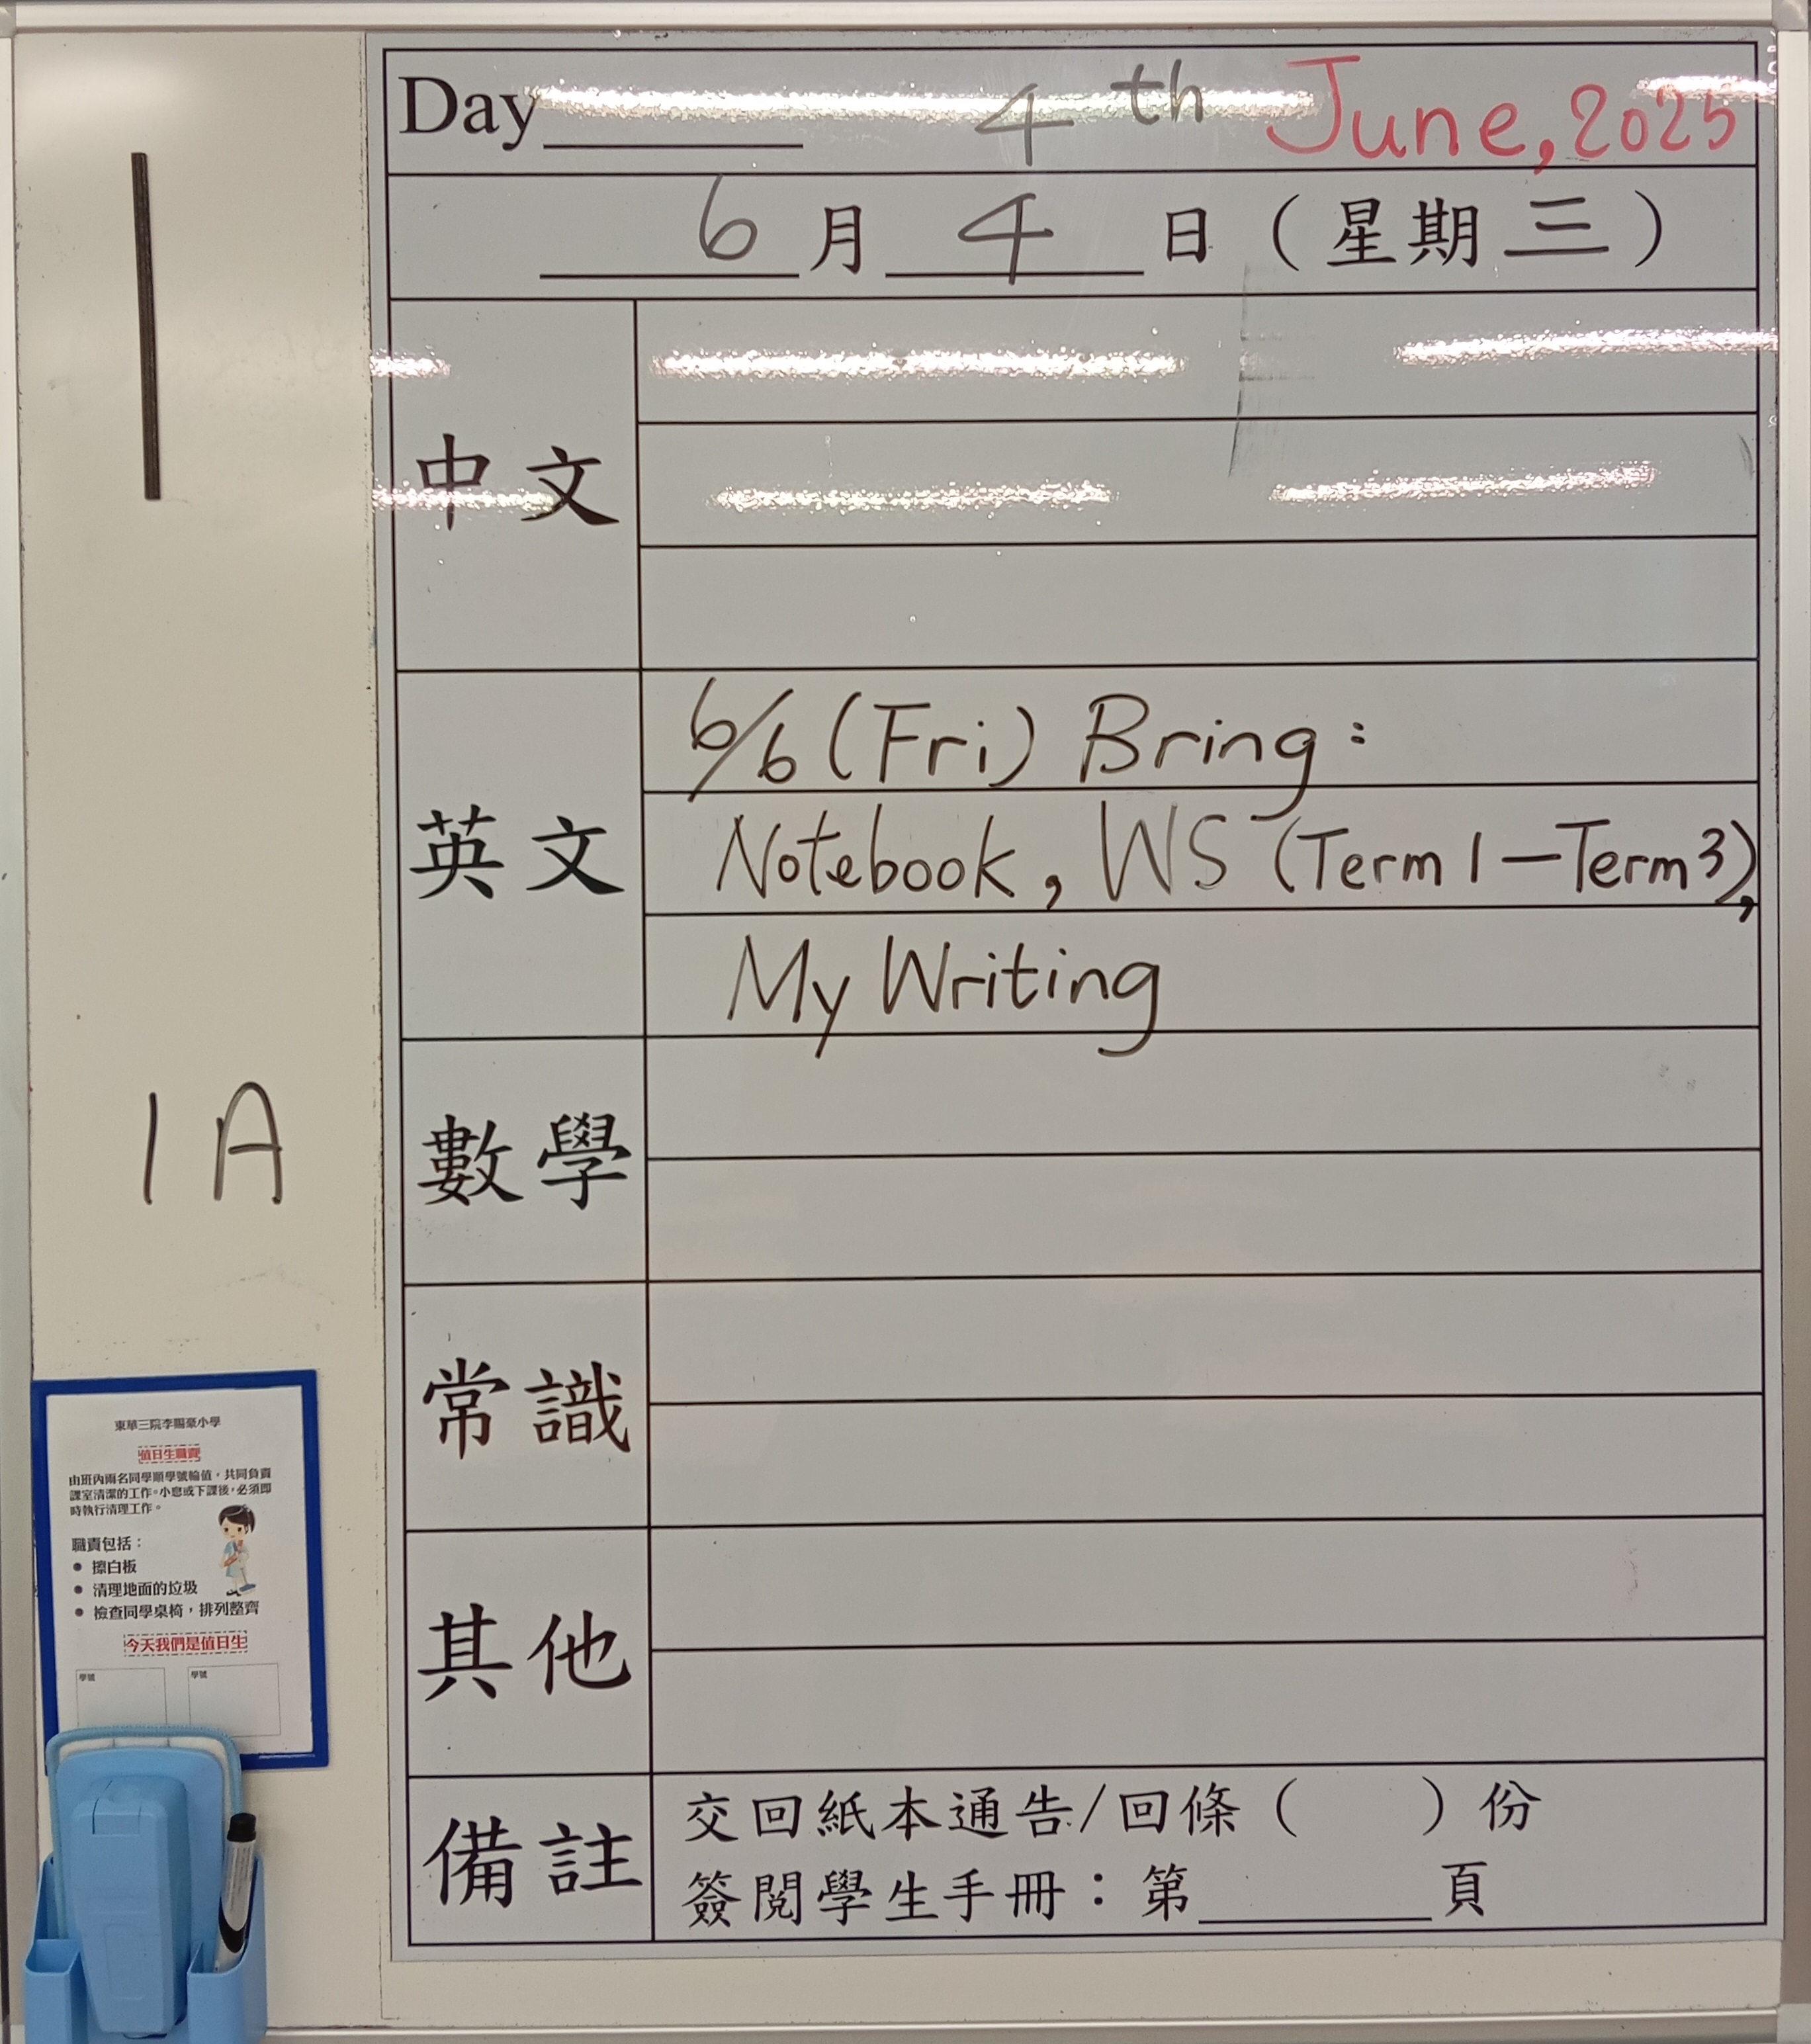 Day 4th June, 2025
6月4日（星期三）
中文
英文
6/6 (Fri) Bring:
Notebook, WS (Term 1 — Term 3),
My Writing
數學
常識
其他
備註
交回紙本通告/回條（ ）份
簽閱學生手冊：第 頁
1A
東華三院李賜豪小學
值日生職責
由班內兩名同學順學號輪值，共同負責
課室清潔的工作。小息或下課後，必須即
時執行清理工作。
職責包括：
• 擦白板
• 清理地面的垃圾
• 檢查同學桌椅，排列整齊
今天我們是值日生
學號 學號